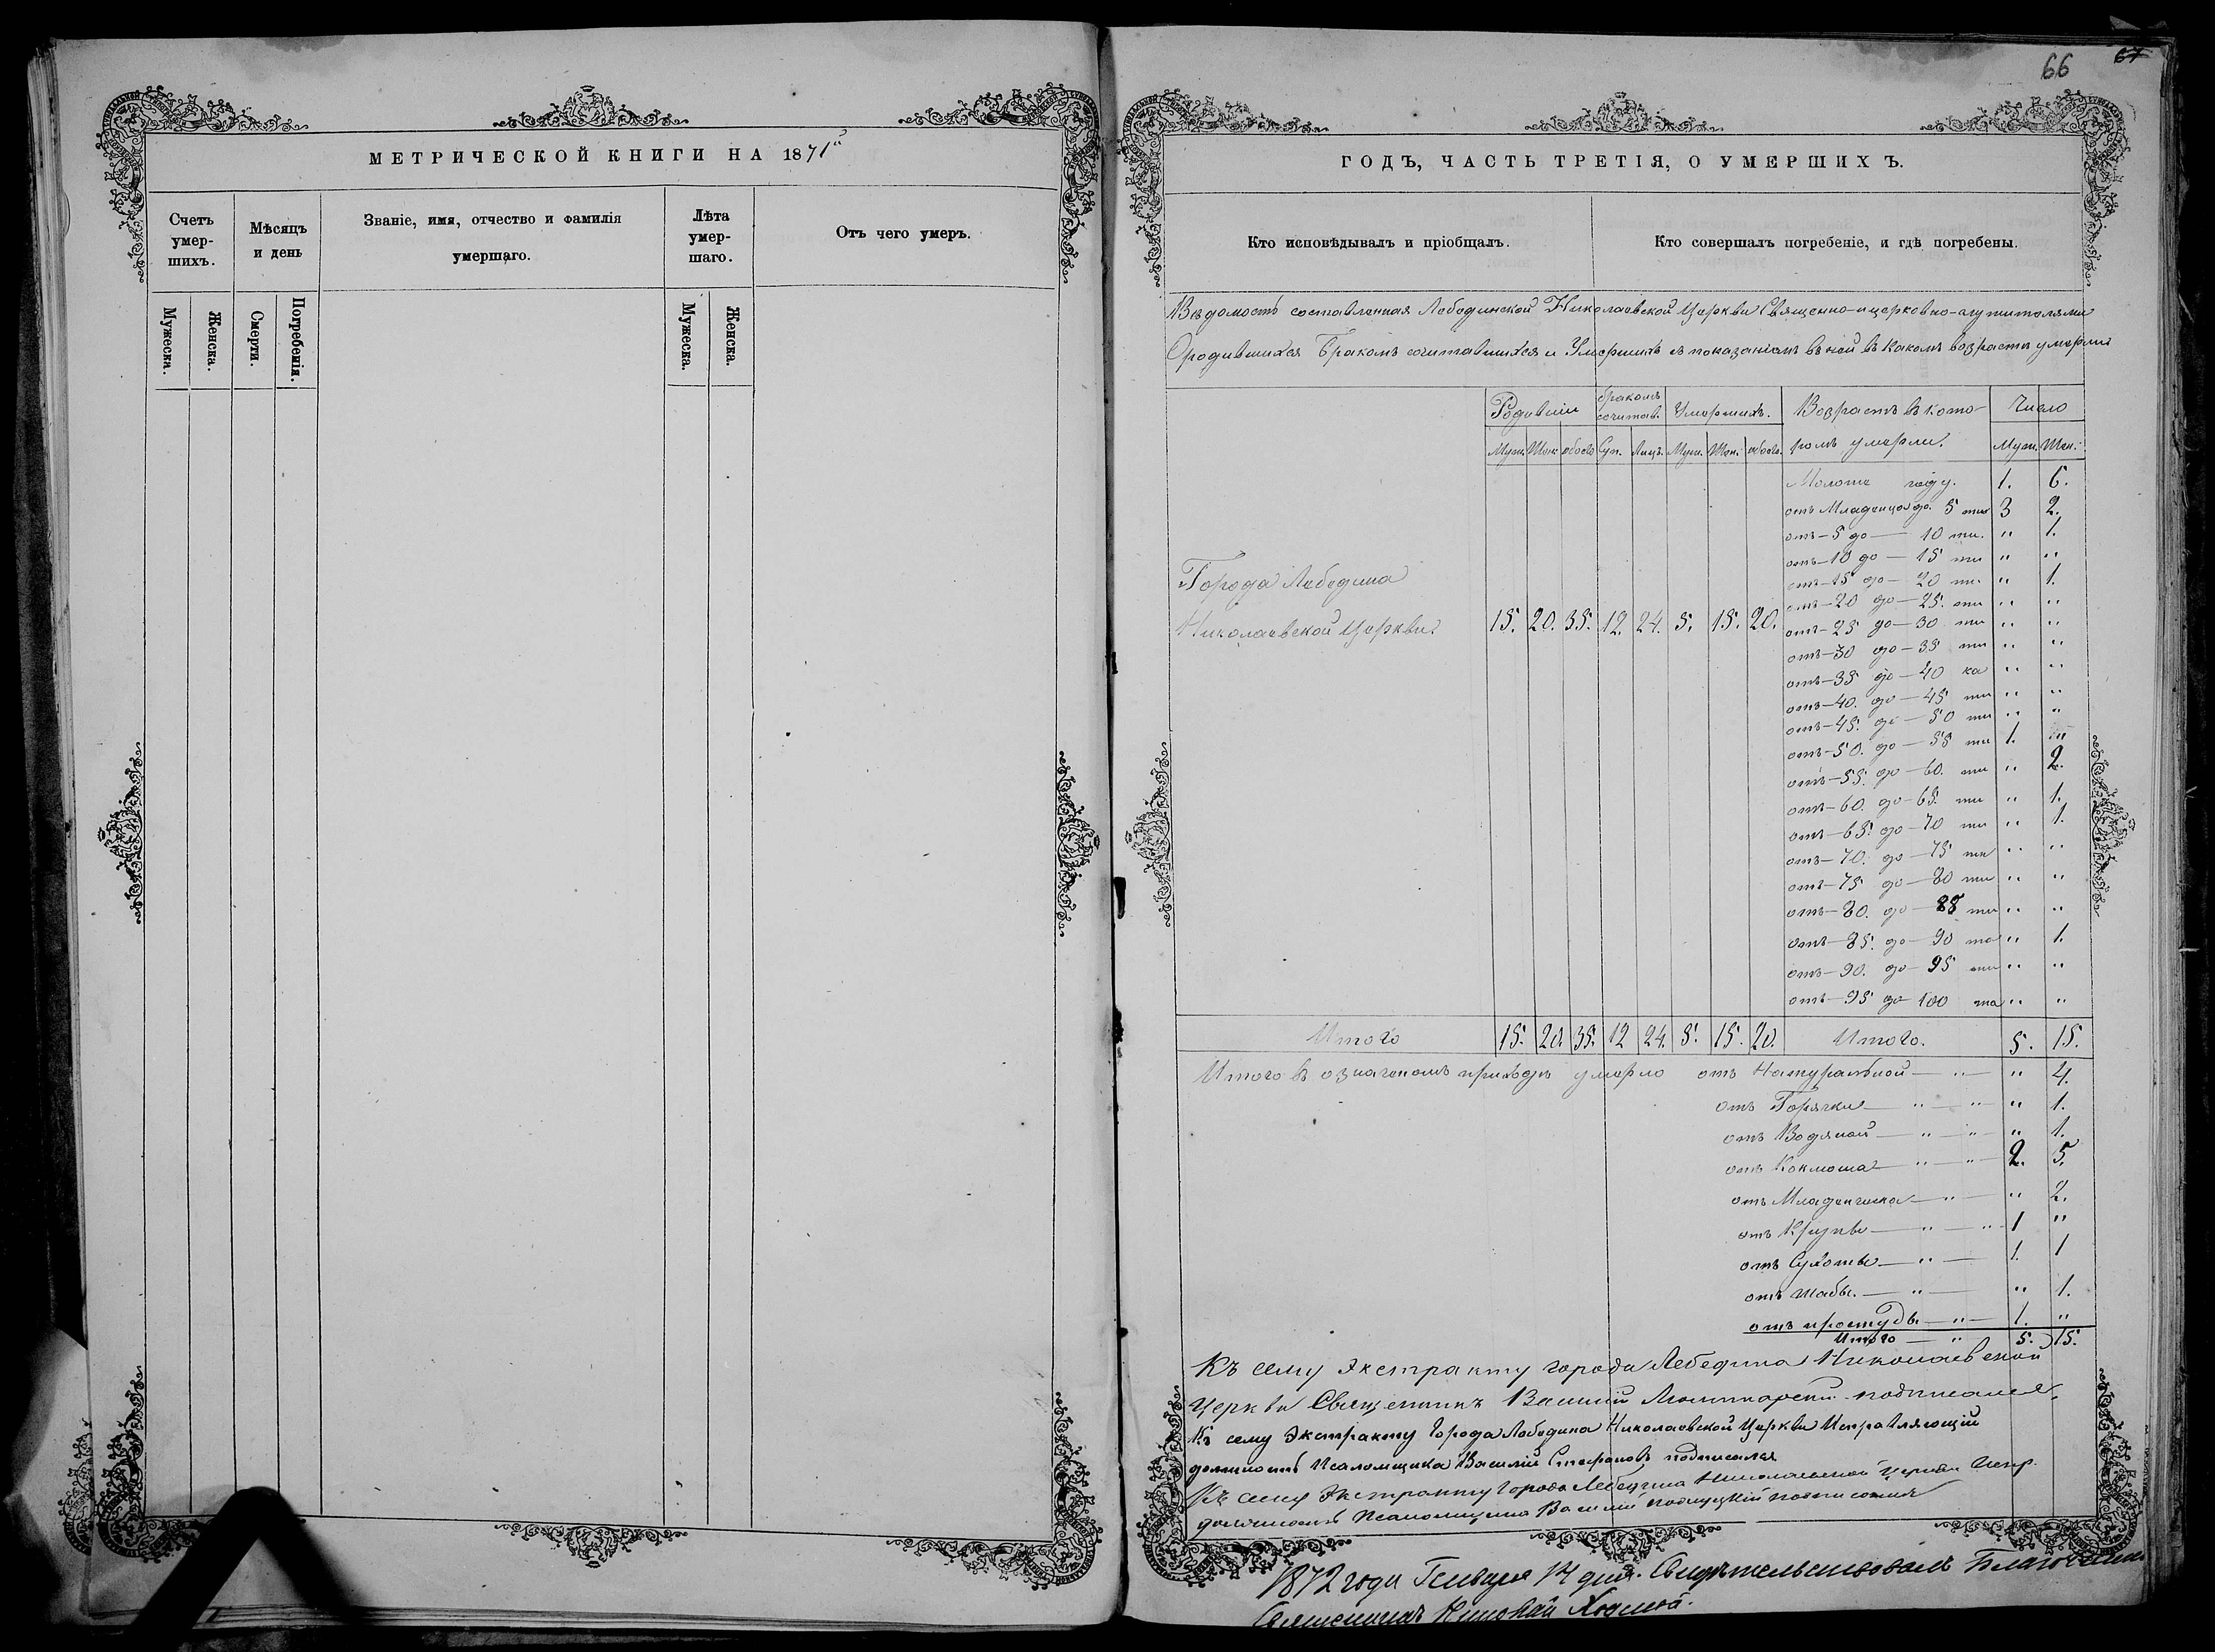 МЕТРИЧЕСКОЙ КНИГИ НА 1871
Счетъ умер-шихъ.
Мѣсяцъ и день
Званіе, имя, отчество и фамилія умершаго.
Лѣта умер-шаго.
Отъ чего умеръ.
Мужеска.
Женска.
Смерти.
Погребенія.
Мужеска.
Женска.
66
67
ГОДЪ, ЧАСТЬ ТРЕТІЯ, О УМЕРШИХЪ.
Кто исповѣдывалъ и пріобщалъ.
Кто совершалъ погребеніе, и гдѣ погребены.
Вѣдомость составленная Лебединской Николаевской Церкви Священно-и церковно-служителями
О родившихся Бракомъ сочитавшихся и Умершихъ съ показаніемъ въ ней въ какомъ возрастѣ умерли
Родивши бракомъ сочитав. Умершихъ. Возрастъ въ кото- Число
Муж. Жен. обоего Суп. Лицъ. Муж. Жен. обоего. ромъ умерли. Муж. Жен.
Моложе году. 1. 6.
отъ Младенца до 5 ти 3 2.
отъ-5 до — 10 ти. " 1.
отъ-10 до — 15 ти " "
отъ-15 до — 20 ти. " 1.
отъ-20 до — 25. ти " "
Города Лебедина
Николаевской Церкви. 15. 20. 35. 12. 24. 5. 15. 20.
отъ-25 до — 30 ти " "
отъ-30 до — 35 ти " "
отъ-35 до — 40 ка " "
отъ-40. до — 45 ти " "
отъ-45. до — 50 ти " "
отъ-50. до — 55 ти 1. "
отъ-55. до — 60. ти " 2.
отъ-60. до — 65. ти " 1.
отъ-65. до — 70 ти " 1.
отъ-70. до — 75 ти " "
отъ-75 до — 80 ти " "
отъ-80. до — 85 ти " "
отъ-85. до — 90 то " 1.
отъ-90. до — 95 ти " "
отъ-95 до — 100 та " "
Итого 15. 20. 35. 12 24. 5. 15. 20. Итого. 5. 15.
Итого въ означеномъ приходѣ умерло отъ Натуральной — " — " 4.
отъ Горячки — " — " " 1.
отъ Водяной — " — " " 1.
отъ Коклюша — " — " 2. 5.
отъ Младенческа — " — " 2.
отъ Крупы — " — " 1 "
отъ Сухоты — " — 1. 1
отъ жабы. — " — " 1.
отъ простуды — " — 1. "
Итого — " 5. 15.
Къ сему Экстракту города Лебедина Николаевской
Церкви Священникъ Василій подписался.
Къ сему Экстракту Города Лебедина Николаевской Церкви Исправляющій
должность Псаломщика Василій Стефановъ подписался
Къ сему Экстракту города Лебедина Николаевской Церкви Испр.
должность Псаломщика Василій подписался
1872 года Генваря 14 дня. Свидѣтельствовалъ
Священникъ Николай